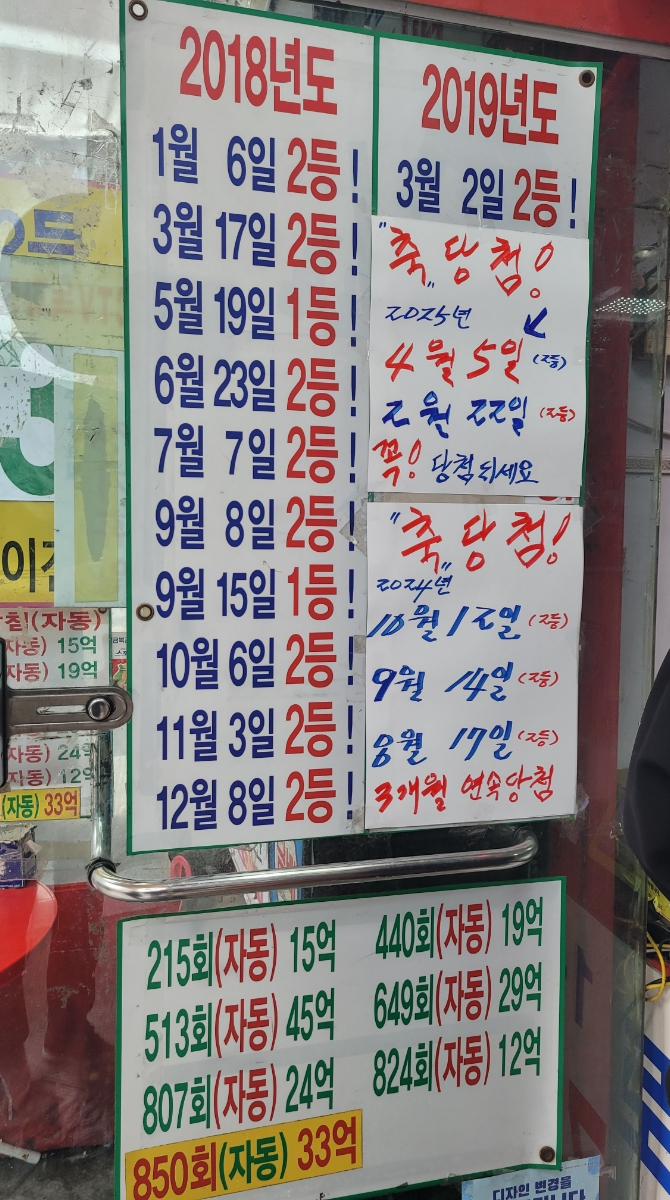 2018년도
1월 6일 2등!
3월 17일 2등!
5월 19일 1등!
6월 23일 2등!
7월 7일 2등!
9월 8일 2등!
9월 15일 1등!
10월 6일 2등!
11월 3일 2등!
12월 8일 2등!
2019년도
3월 2일 2등!
"축" 당첨!
2025년
4월 5일 (2등)
2월 22일 (2등)
꼭! 당첨되세요
"축" 당첨!
2024년
10월 12일 (2등)
9월 14일 (2등)
8월 17일 (2등)
3개월 연속당첨
(자동)
15억
19억
24억
12억
(자동) 33억
215회(자동) 15억
440회(자동) 19억
513회(자동) 45억
649회(자동) 29억
807회(자동) 24억
824회(자동) 12억
850회(자동) 33억
디자인 변경을